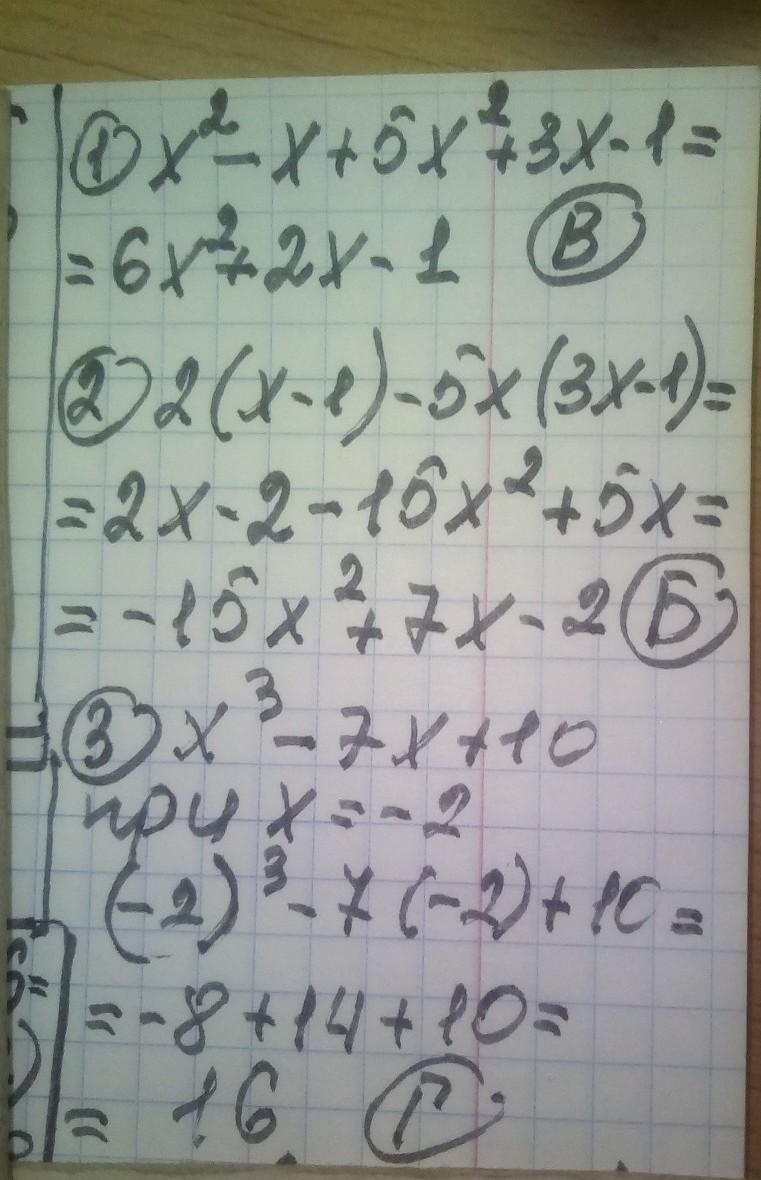 ① x² - x + 5x² + 3x - 1 =
= 6x² + 2x - 1 В
② 2(x - 1) - 5x(3x - 1) =
= 2x - 2 - 15x² + 5x =
= -15x² + 7x - 2 Б
③ x³ - 7x + 10
при x = -2
(-2)³ - 7(-2) + 10 =
= -8 + 14 + 10 =
= 16 Г